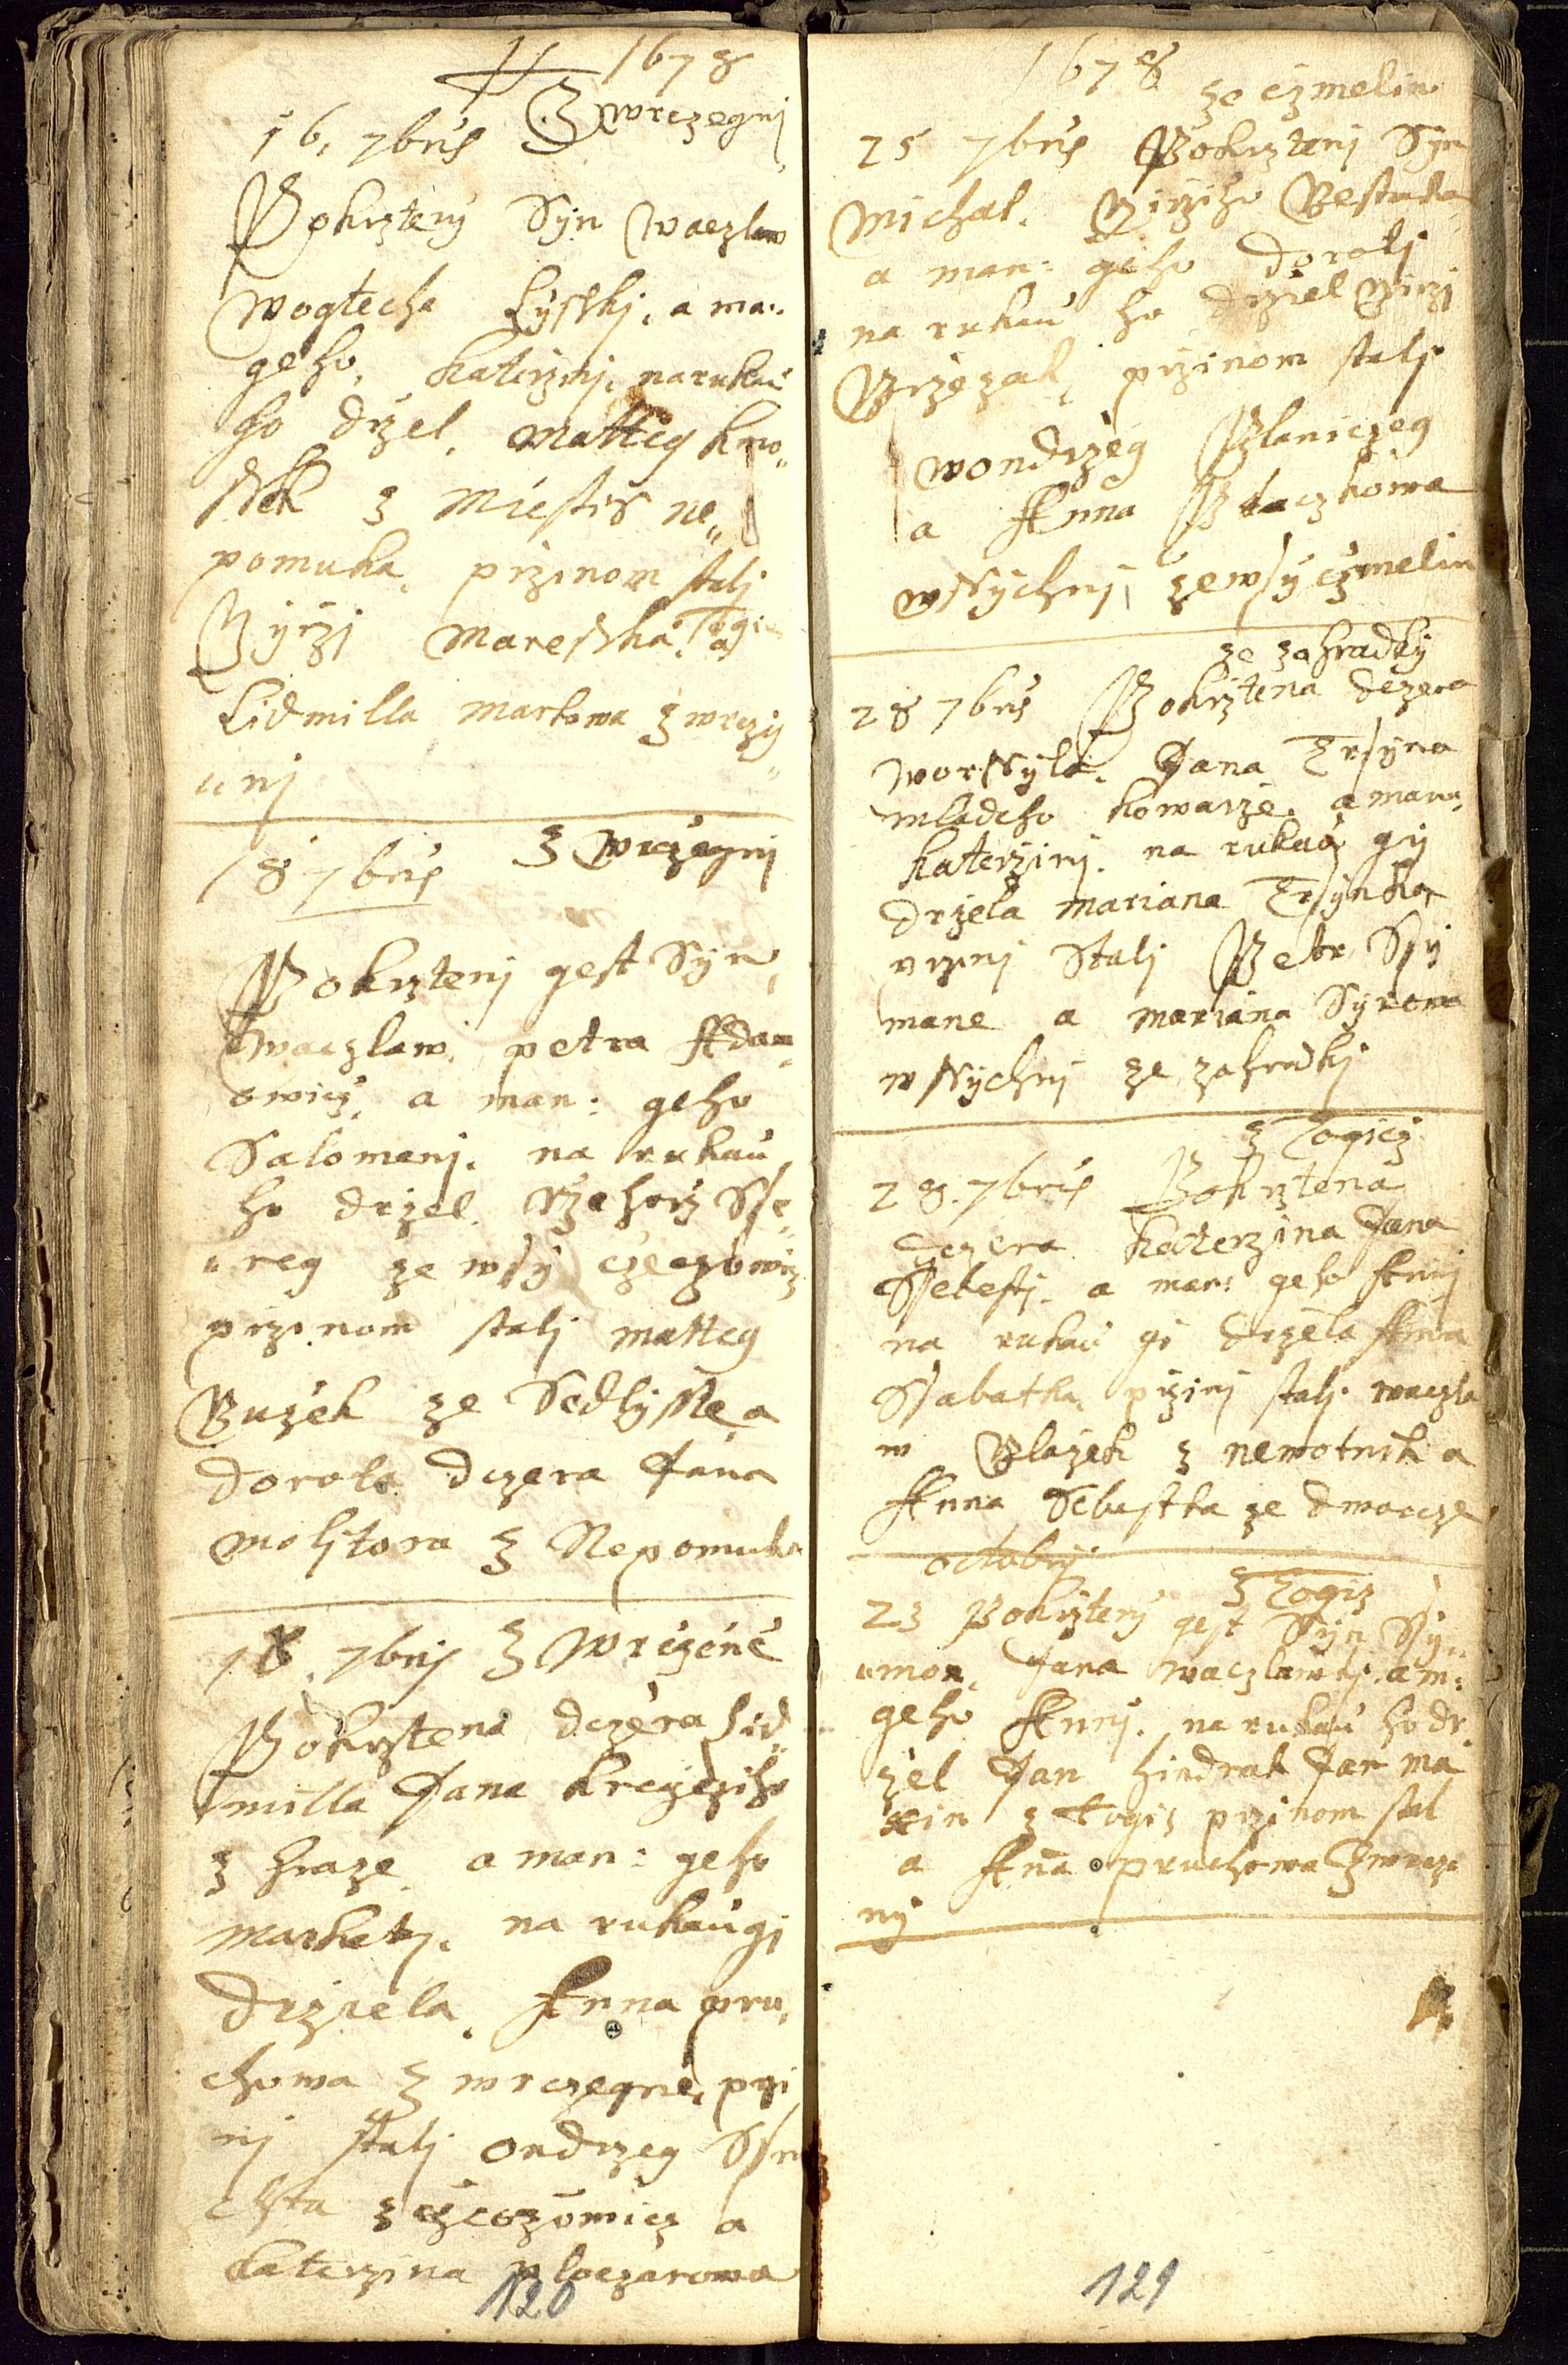 1678
Z wrczegnj
16. 7bris
Pokrztený Syn waczlaw
wogtecha Lysskj, a ma:
geho, katerzinj, na rukau
ho držel, Mattieg kwo„
ssek z Miestis ne„
pomuka, przinom stalj
Girzj Maresska, a
Lidmilla Markowa z wrczy„
„nj
18 7bris z wrczegnj
Pokrztenj gest Syn,
waczlaw, petra Adam„
owicz, a man: geho
Salomenj. na rukau
ho držel. Rzehorz Sse„
„reg ze wsy czeczowicz
przinom stalj matteg
Buzek ze Sedlysstie a
dorota dczera Jana
molitora z Nepomuka
18. 7bris z wrczéné
Pokrztena dczera Lid„
milla Jana kreyczyho
z hraze a man: geho
markety. na rukau gi
držiela. Anna pru„
chowa z wrczegné, przi
nj stalj ondrzeg
z czeczowicz a
katerzina ploczarowa
120
1678
ze czmelin
25 7bris Pokrztenj Syn
Michal. Girziho Bestaka
a man: geho dorotj
na rukau ho držiel Girzj
Brzezak, przinom stalj
wondrzeg Planiczeg
a Anna Ptaczkowa
wssychnj, ze wsy czmelin
ze zahradky
28 7bris Pokrztena dczera
worssyla. Jana Trsyna
mladeho kowarze. a man:
katerzinj. na rukau gij
držela Mariana Trsynka
przinj Stalj Petr
mane a Mariana Syrowa
wssychnj ze zahradkj
z Togicz
28. 7bris Pokrztena
dczera katerzina Jana
Ssebestj. a man: geho Annj
na rukau gi držela Anna
Ssabatka, przinj stalj waczla
w Blažek z newotnik a
Anna Sebestka ze dworcze
octobris
z Togiz
23 Pokrztený gest Syn Ssy„
„mon, Jana waczlawka. a m:
geho Annj. na rukau ho dr
žel Jan hindrak Jan Ma
z Togiz przinom stal
a Anna pruchowa z wrcze
ný
129